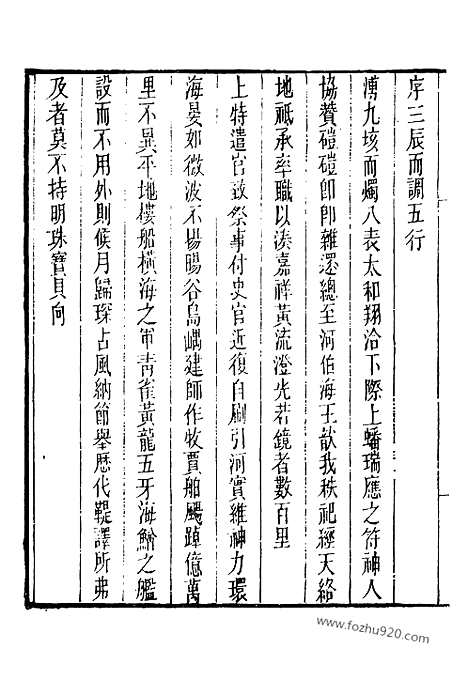 序三辰而調五行
溥九垓而燭八表太和翔洽下際上蟠瑞應之符神人
協贊磕磕卽卽雜遝總至河伯海王歆我秩祀經天絡
地祗承率職以湊嘉祥黃流澄光若鏡者數百里
上特遣官致祭事付史官近復自刷引河實維神力環
海晏如微波不揚暘谷島嶼建師作牧賈舶颺踔億萬
里不異平地樓船橫海之軍靑雀黃龍五牙海鰌之艦
設而不用外則候月歸琛占風納節舉歷代鞮譯所弗
及者莫不持明珠寶貝向
www.fozhu920.com